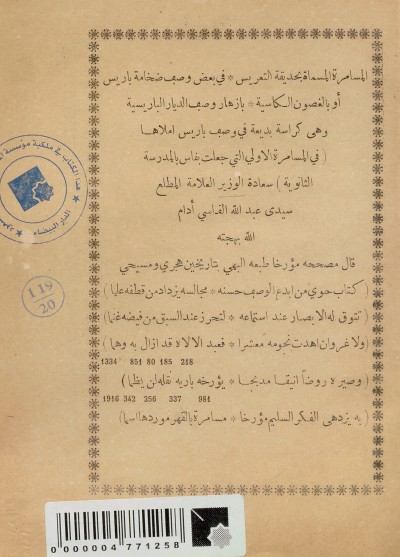 المسامرة المسماة بحديقة التعريس * في بعض وصف ضخامة باريس
أو بالغصون الكاسية * بازهار وصف الديار الباريسية
وهى كراسة بديعة في وصف باريس املاها
( في المسامرة الاولي التي جعلت بفاس بالمدرسة
الثانوية ) سعادة الوزير العلامة المطلع
سيدى عبد الله الفاسي أدام
الله بهجته
قال مصححه مؤرخا طبعه البهي بتاريخين هجري و مسيحي
( كتاب حوي من ابدع الوصف حسنه * مجالسه يزداد من قطفه علما )
( تتوق له الابصار عند استماعه * لتحرز عند السبق من فيضه غنما )
( ولا غرو ان اهدت نجومه معشرا * فعبد الالاه قد ازال به وهما )
1334 851 80 185 218
( وصيره روضا انيقا مدبجا * يؤرخه باربه نقله لن يظما )
1916 342 256 337 981
( به يزدهى الفكر السليم مؤرخا * مسامرة بالقهر موردها اسما )
هذا الكتاب في ملكية مؤسسة
الدار البيضاء
119
20
0 000004 771258